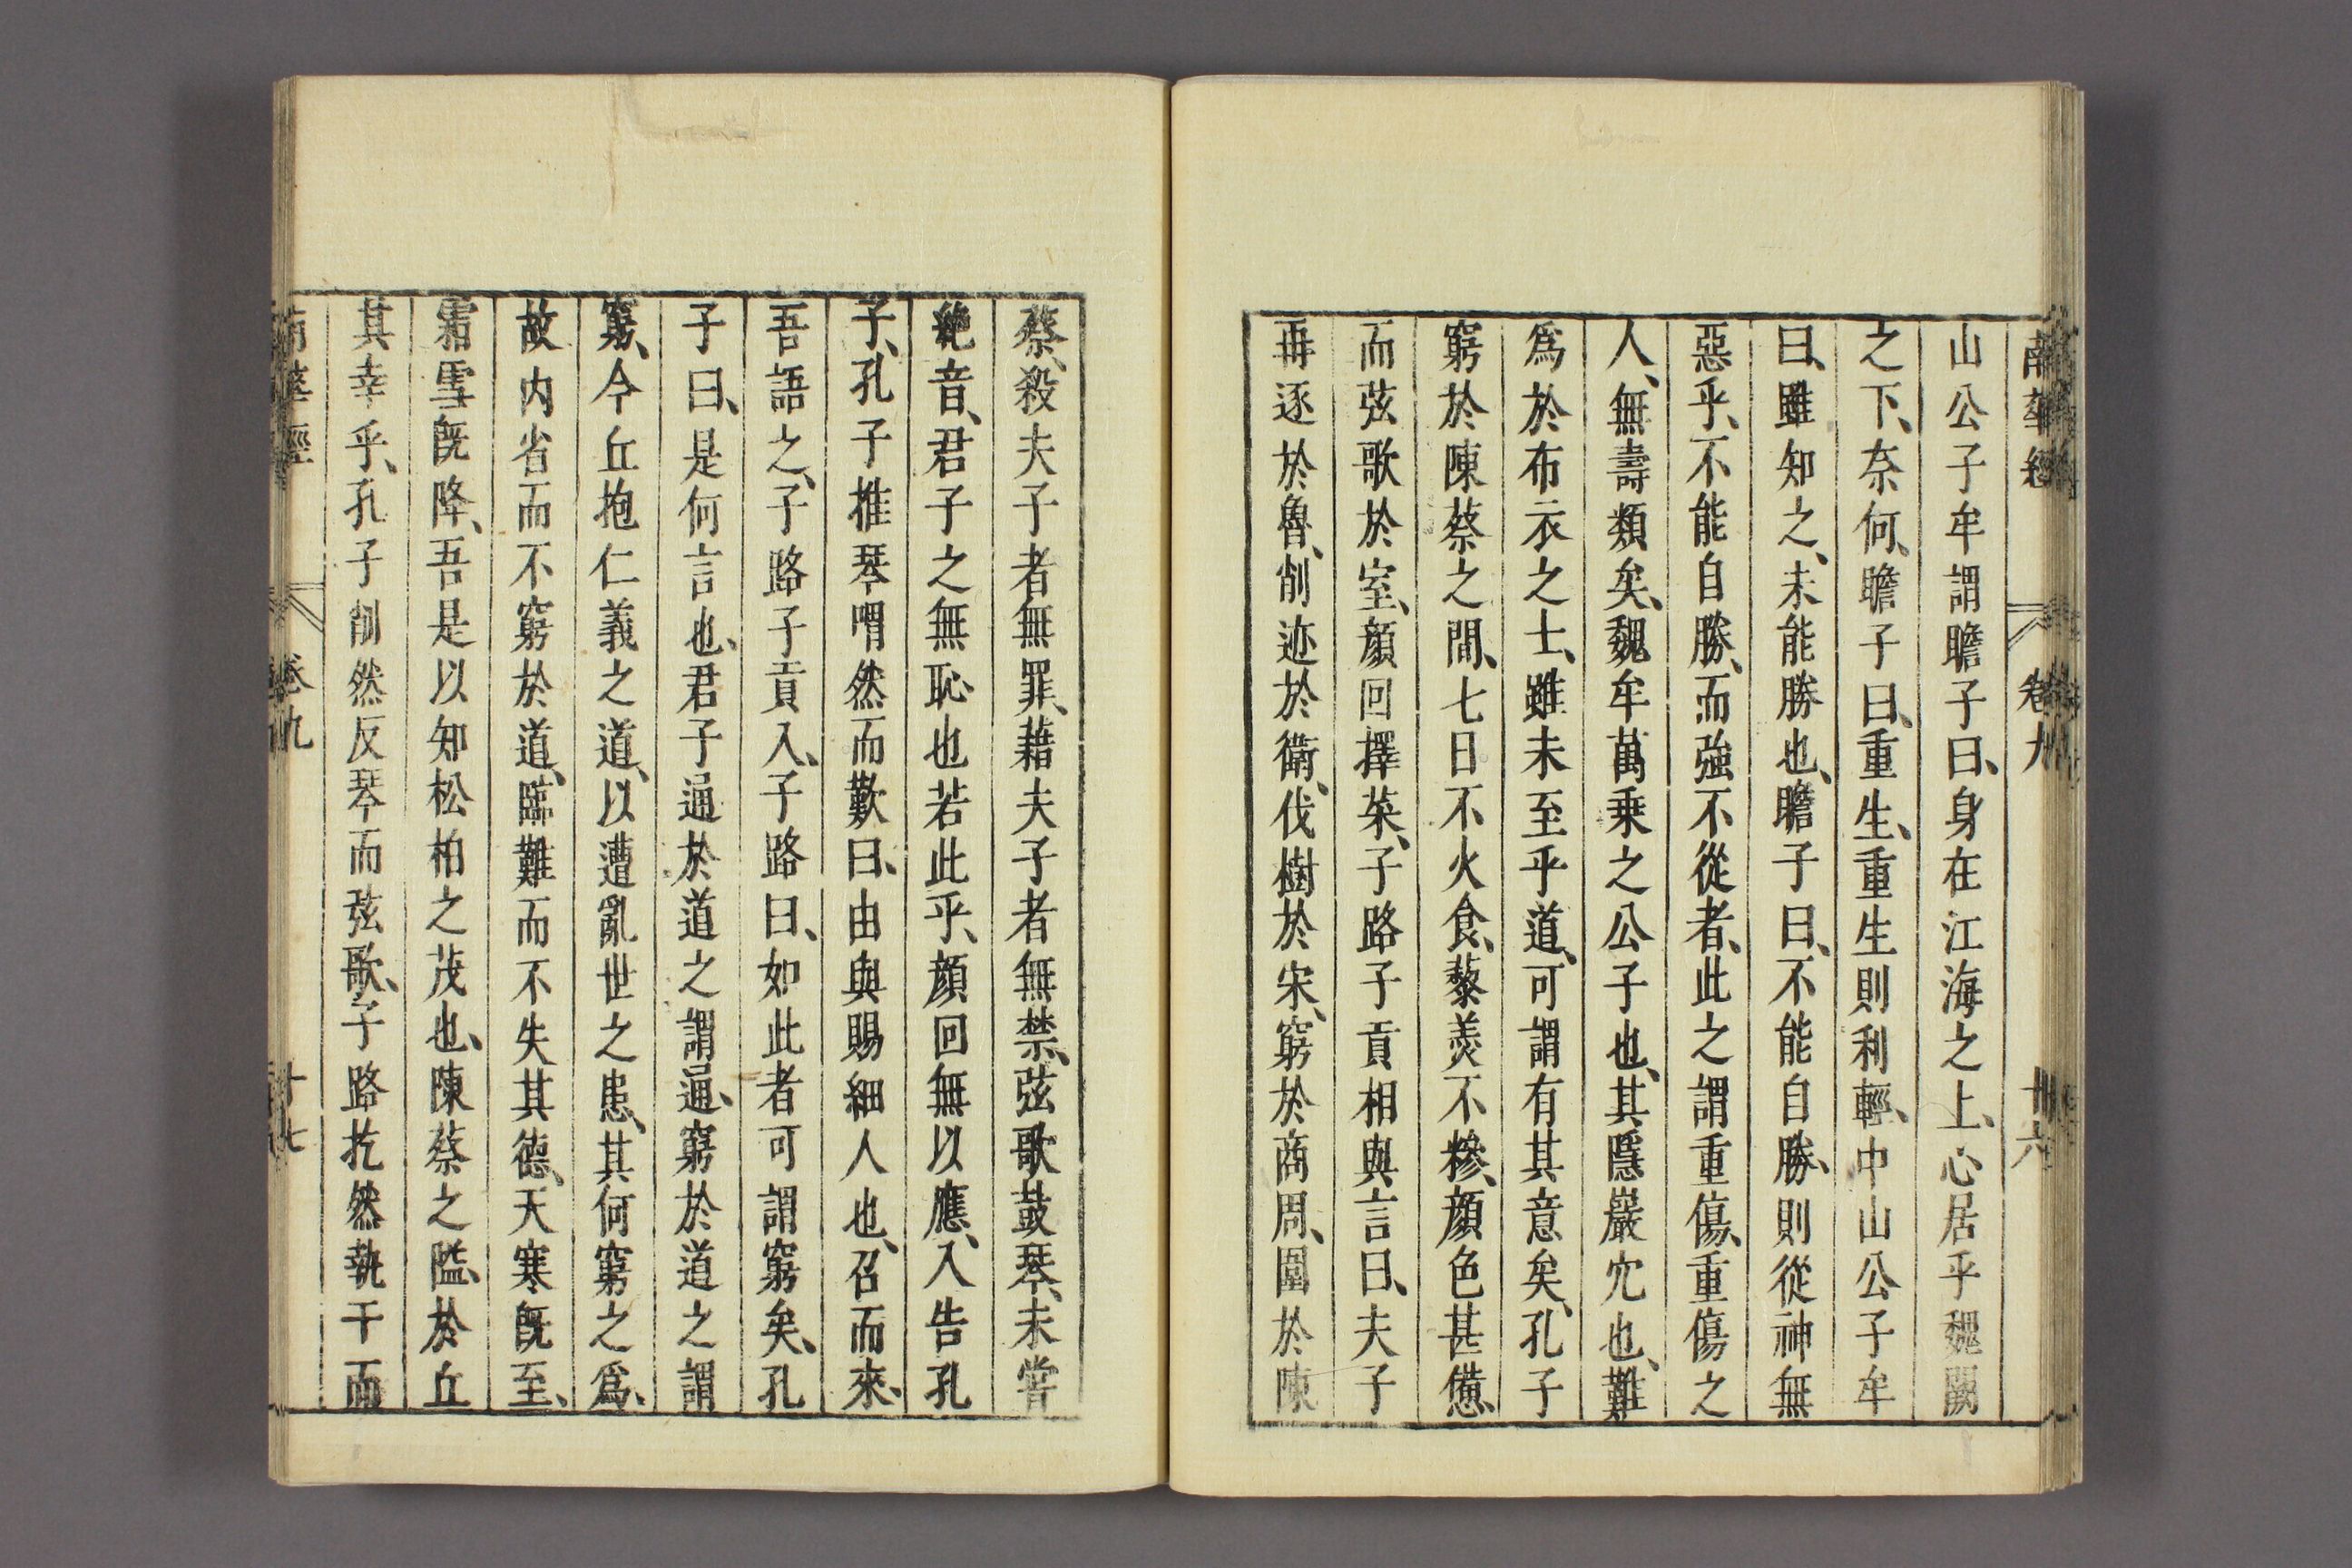 南華經 卷九 廿六
山公子牟謂瞻子曰、身在江海之上、心居乎魏闕
之下、奈何、瞻子曰、重生、重生則利輕、中山公子牟
曰、雖知之、未能勝也、瞻子曰、不能自勝、則從神無
惡乎、不能自勝、而強不從者、此之謂重傷、重傷之
人、無壽類矣、魏牟萬乗之公子也、其隱巖穴也、難
爲於布衣之士、雖未至乎道、可謂有其意矣、孔子
窮於陳蔡之間、七日不火食、藜羮不糝、顔色甚憊、
而弦歌於室、顔回擇菜、子路子貢相與言曰、夫子
再逐於魯、削迹於衛、伐樹於宋、窮於商周、圍於陳
蔡、殺夫子者無罪、藉夫子者無禁、弦歌鼓琴、未嘗
絶音、君子之無恥也若此乎、顔回無以應、入告孔
子、孔子推琴喟然而歎曰、由與賜細人也、召而來、
吾語之、子路子貢入、子路曰、如此者可謂窮矣、孔
子曰、是何言也、君子通於道之謂通、窮於道之謂
窮、今丘抱仁義之道、以遭亂世之患、其何窮之爲、
故内省而不窮於道、臨難而不失其德、天寒既至、
霜雪既降、吾是以知松柏之茂也、陳蔡之隘、於丘
其幸乎、孔子削然反琴而弦歌、子路扢然執干而
南華經 卷九 十七